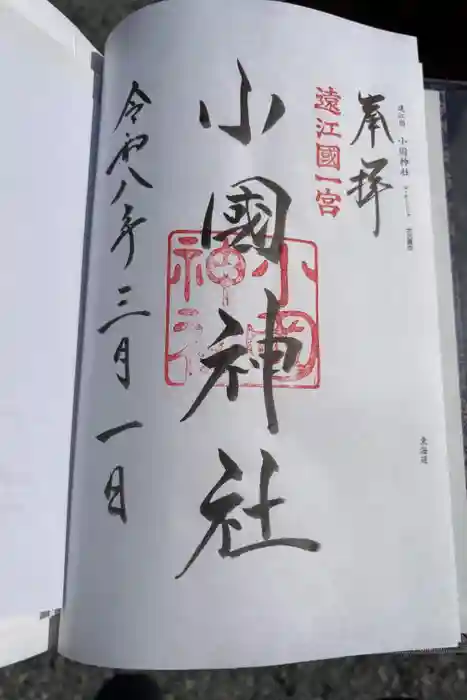 遠江国 小國神社
東海道
奉拝
遠江國一宮
小國神社
小國神社
令和八年三月一日